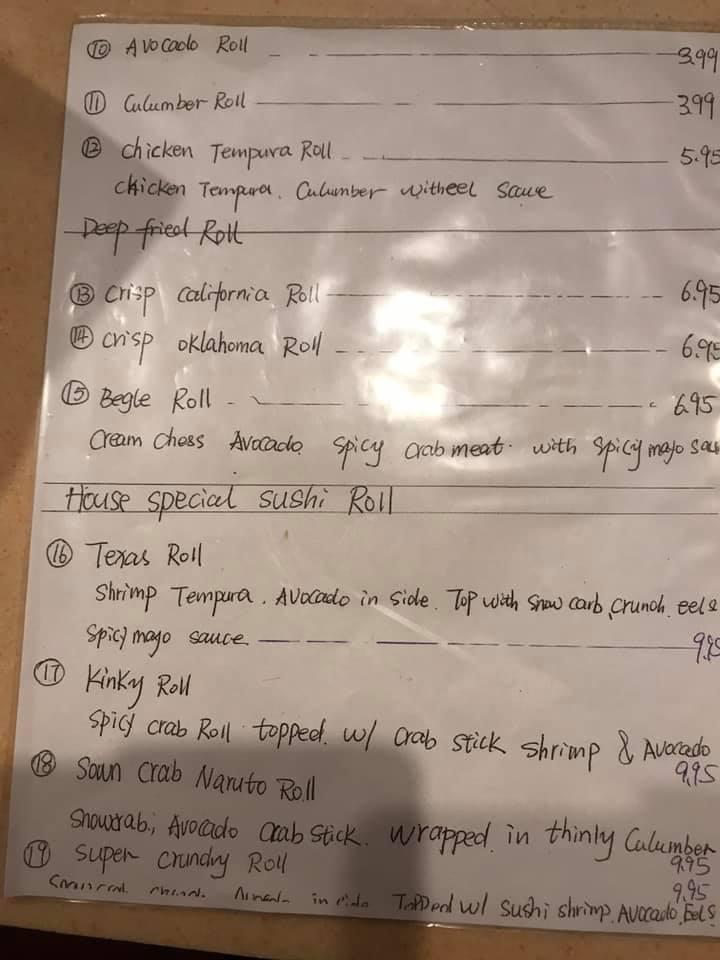 ⑩ Avocado Roll 3.99
⑪ Culumber Roll 3.99
⑫ chicken Tempura Roll 5.95
chicken Tempura. Culumber witheel Sauce
Deep fried Roll
⑬ crisp california Roll 6.95
⑭ crisp oklahoma Roll 6.95
⑮ Begle Roll 6.95
Cream Chess Avocado Spicy Crab meat. with Spicy mayo sau
House special sushi Roll
⑯ Texas Roll
Shrimp Tempura. Avocado in side. Top with Snow carb, crunch. eel &
Spicy mayo sauce. 9.95
⑰ Kinky Roll
Spicy crab Roll topped. w/ Crab Stick Shrimp & Avocado
9.95
⑱ Soun Crab Naruto Roll
Snowcrab; Avocado Crab Stick. wrapped in thinly Culumber
9.95
⑲ Super Crundry Roll
9.95
in side Topped w/ Sushi shrimp. Avocado, Eel S